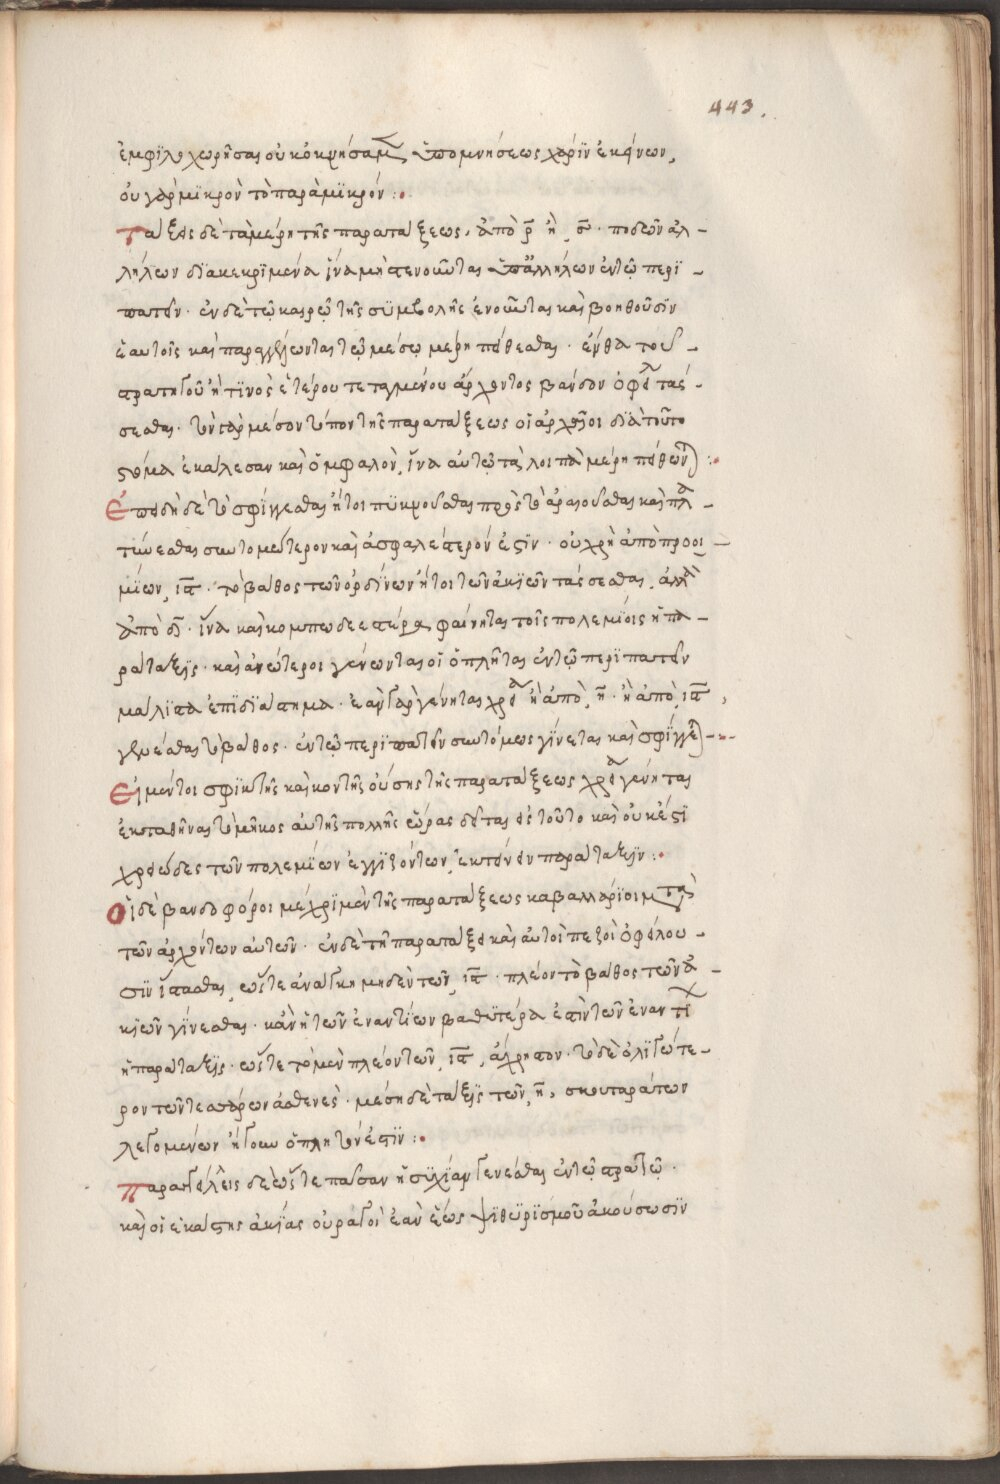 443.
ἐμφϊλοχωρῆσαι οὐκ ὀκνήσαμεν ὑπομνήσεως χάρϊν ἐκείνων,
οὐ γὰρ μϊκρὸν τὸ παρὰ μϊκρόν :·
Τάξεις δὲ τὰ μέρη τῆς παρατάξεως, ἀπὸ ρ̅ ἢ σ̅ · ποδῶν ἀλ-
λήλων δϊακεκρϊμένα ἵνα μὴ στενοῦνται ὑπ' ἀλλήλων ἐν τῷ περϊ-
πατεῖν · ἐν δὲ τῷ καιρῷ τῆς συμβολῆς ἑνοῦνται καὶ βοηθοῦσϊν
ἑαυτοῖς καὶ παραγγέλλονται τῷ μέσῳ μέρη πείθεσθαι · ἔνθα τοῦ σ-
τρατηγοῦ ἢ τϊνὸς ἑτέρου τεταγμένου ἄρχοντος βάνδον ὀφείλει τάσ-
σεσθαι · τὸν γὰρ μέσον τόπον τῆς παρατάξεως οἱ ἀρχαῖοι δϊὰ τοῦτο
στόμα ἐκάλεσαν καὶ ὀμφαλὸν, ἵνα αὐτῷ τὰ λοιπὰ μέρη πείθωνται :·
Ἐπειδὴ δὲ τὸ σφίγγεσθαι ἤτοι πϋκνοῦσθαι πρὸς τὸ ἀραιοῦσθαι καὶ πλα-
τύνεσθαι συντομώτερον καὶ ἀσφαλέστερόν ἐστϊν · οὐ χρὴ ἀπὸ προοι-
μϊων, ιϛ̅ · τὸ βάθος τῶν ὀρδίνων ἤτοι τῶν ἀκϊῶν τάσσεσθαι, ἀλλὰ
ἀπὸ δ̅ · ἵνα καὶ κομπωδεστέρα φαίνηται τοῖς πολεμϊοις ἡ πα-
ράταξϊς · καὶ ἀνώτεροι γένωνται οἱ ὁπλῖται ἐν τῷ περϊπατεῖν
μάλϊστα ἐπϊ δϊάστημα · ἐὰν γὰρ γένηται χρεία ἢ ἀπὸ, η̅ · ἢ ἀπὸ, ιϛ̅ ,
γενέσθαι τὸ βάθος · ἐν τῷ περϊπατεῖν συντόμως γίνεται καὶ σφίγγεται :·
Εἰ μέντοι σφϊκτῆς καὶ κοντῆς οὔσης τῆς παρατάξεως χρεία γένηται
ἐκταθῆναι τὸ μῆκος αὐτῆς πολλῆς ὥρας δεῖται εἰς τοῦτο καὶ οὐκ ἔστϊ
χρειῶδες τῶν πολεμϊων ἐγγϊζόντων, ἐκτείνειν παράταξϊν :·
Οἱ δὲ βανδοφόροι μέχρϊ μὲν τῆς παρατάξεως καβαλλάρϊοι μετὰ
τῶν ἀρχόντων αὐτῶν · ἐν δὲ τῇ παρατάξει καὶ αὐτοὶ πεζοὶ ὀφείλου-
σϊν ἵστασθαι, ὥστε ἀνάγκη μηδὲν τῶν, ιϛ̅ · πλέον τὸ βάθος τῶν ἀ-
κϊῶν γίνεσθαι · κἂν ἡ τῶν ἐναντϊων βαθυτέρα ἐστὶν τῶν ἐναντϊων
ἡ παράταξϊς · ὥστε τὸ μὲν πλέον τῶν, ιϛ̅ , ἄχρηστον · τὸ δὲ ὀλϊγώτε-
ρον τῶν τεσσάρων ἀσθενὲς · μέση δὲ τάξϊς τῶν, η̅ , σκουταράτων
λεγομένων ἤγουν ὁπλιτῶν ἐστϊν :·
Παραγγέλλεις δὲ ὥστε πᾶσαν ἡσυχϊαν γενέσθαι ἐν τῷ στρατῷ ·
καὶ οἱ ἑκάστης ἀκϊας οὐραγοὶ ἐὰν ἕως ψϊθυρϊσμοῦ ἀκούσωσϊν